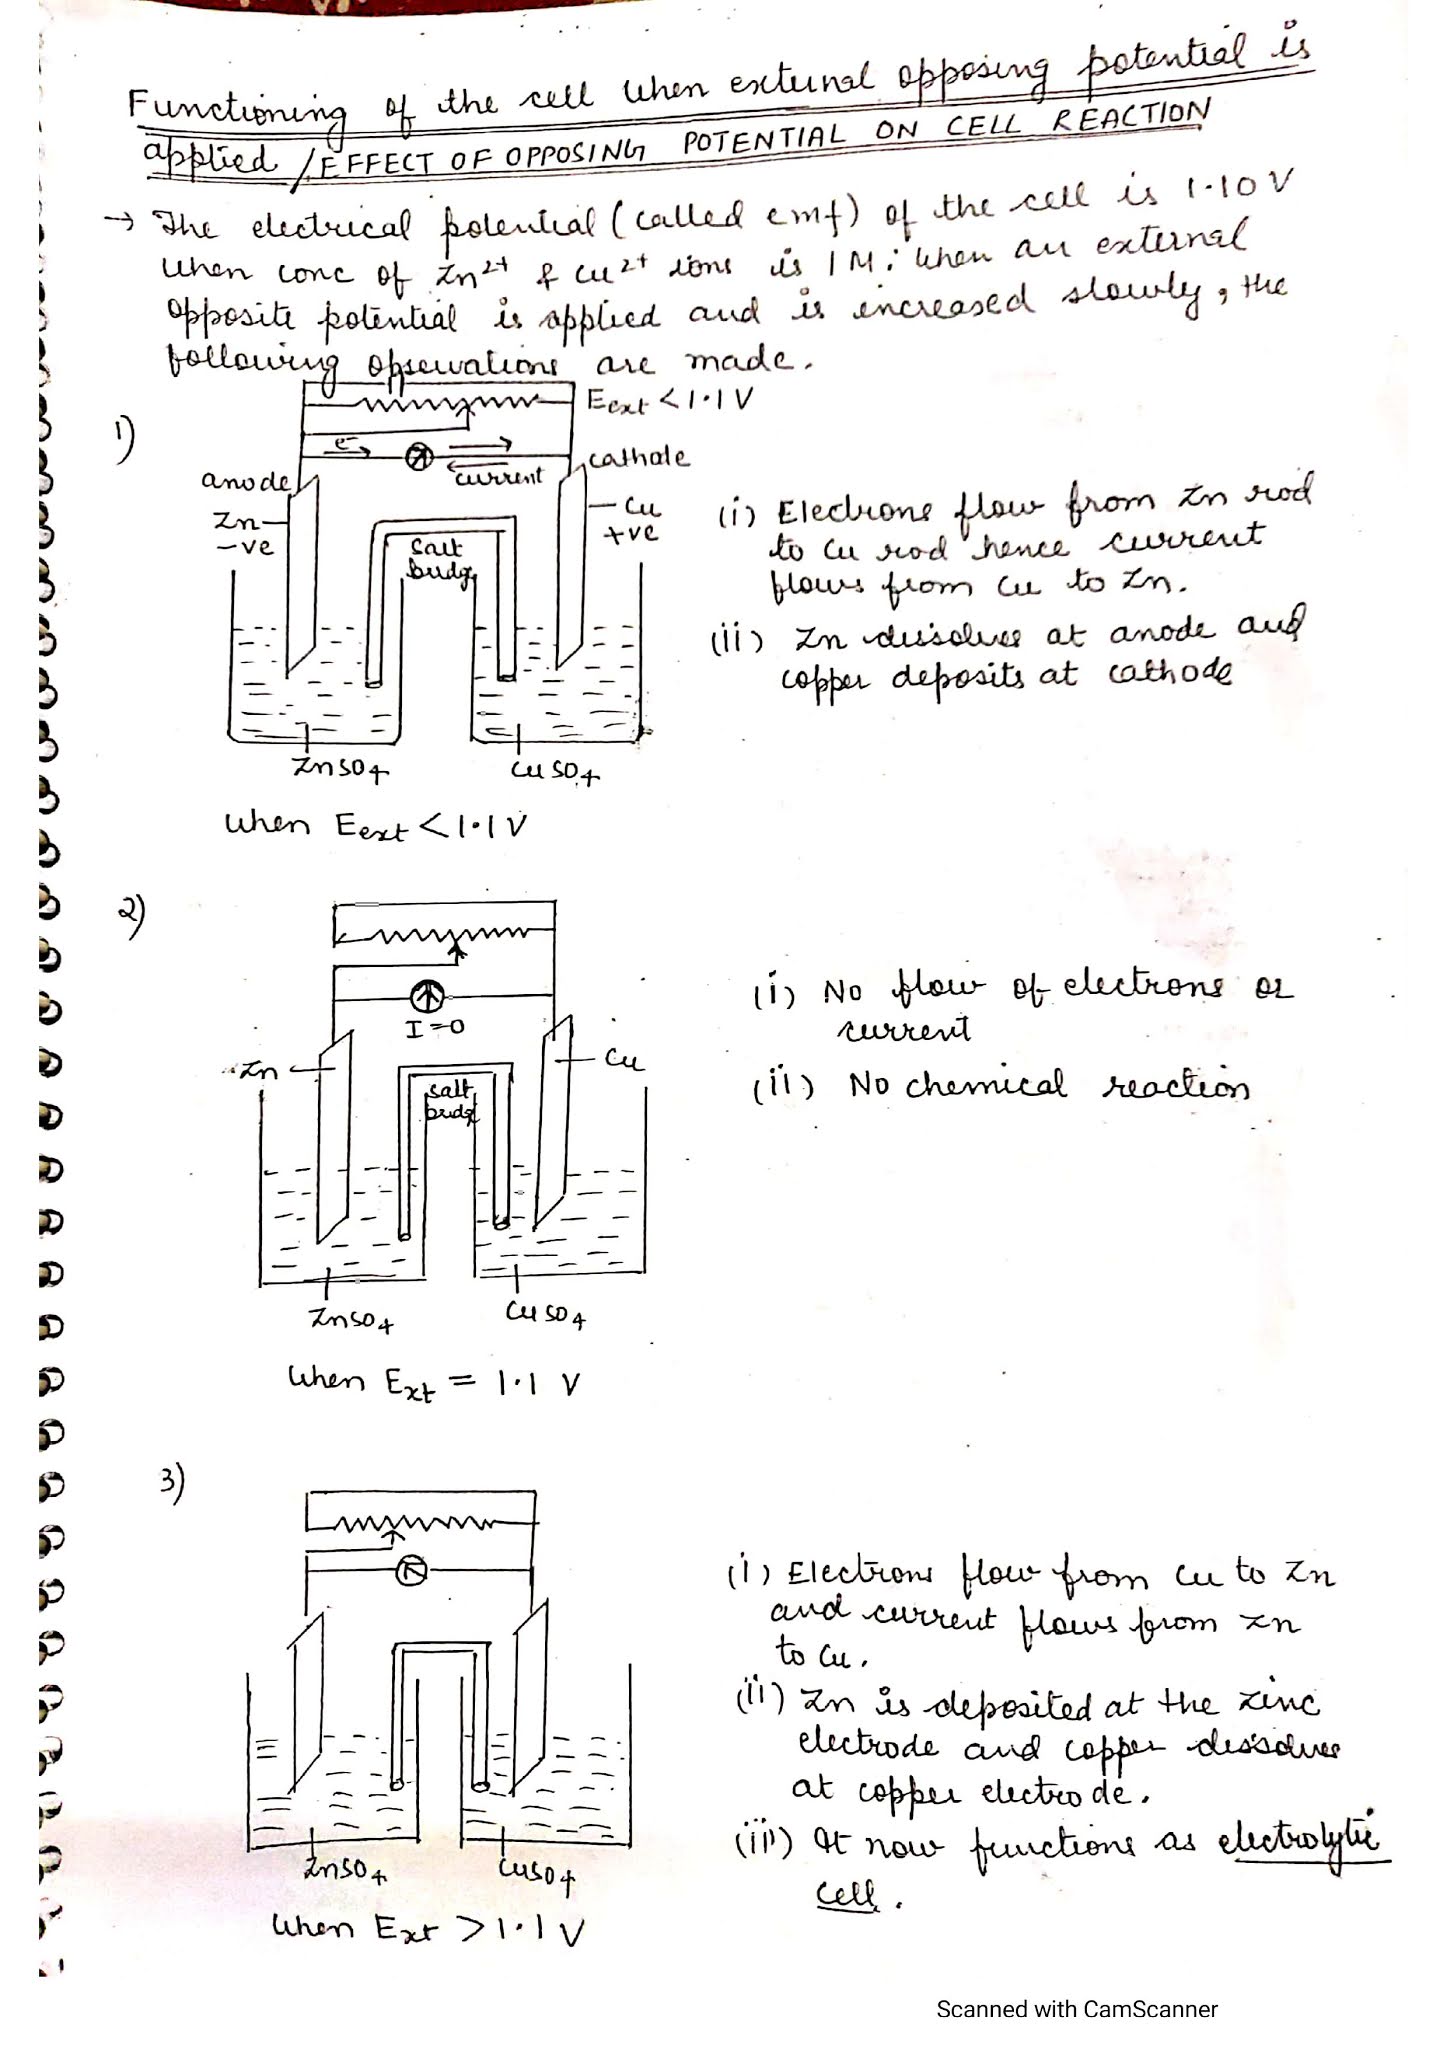 Functioning of the cell when external opposing potential is
applied / EFFECT OF OPPOSING POTENTIAL ON CELL REACTION
→ The electrical potential (called emf) of the cell is 1.10 V
when conc of Zn²⁺ & Cu²⁺ ions is 1M. When an external
opposite potential is applied and is increased slowly, the
following observations are made.
1)
Eext < 1.1 V
e⁻
current
anode
cathode
Zn
-ve
Cu
+ve
salt
bridge
ZnSO4
CuSO4
When Eext < 1.1 V
(i) Electrons flow from Zn rod
to Cu rod hence current
flows from Cu to Zn.
(ii) Zn dissolves at anode and
copper deposits at cathode
2)
I = 0
Zn
Cu
salt
bridg
ZnSO4
CuSO4
When Ext = 1.1 V
(i) No flow of electrons or
current
(ii) No chemical reaction
3)
ZnSO4
CuSO4
When Ext > 1.1 V
(i) Electrons flow from Cu to Zn
and current flows from Zn
to Cu.
(ii) Zn is deposited at the zinc
electrode and copper dissolves
at copper electrode.
(iii) It now functions as electrolytic
cell.
Scanned with CamScanner